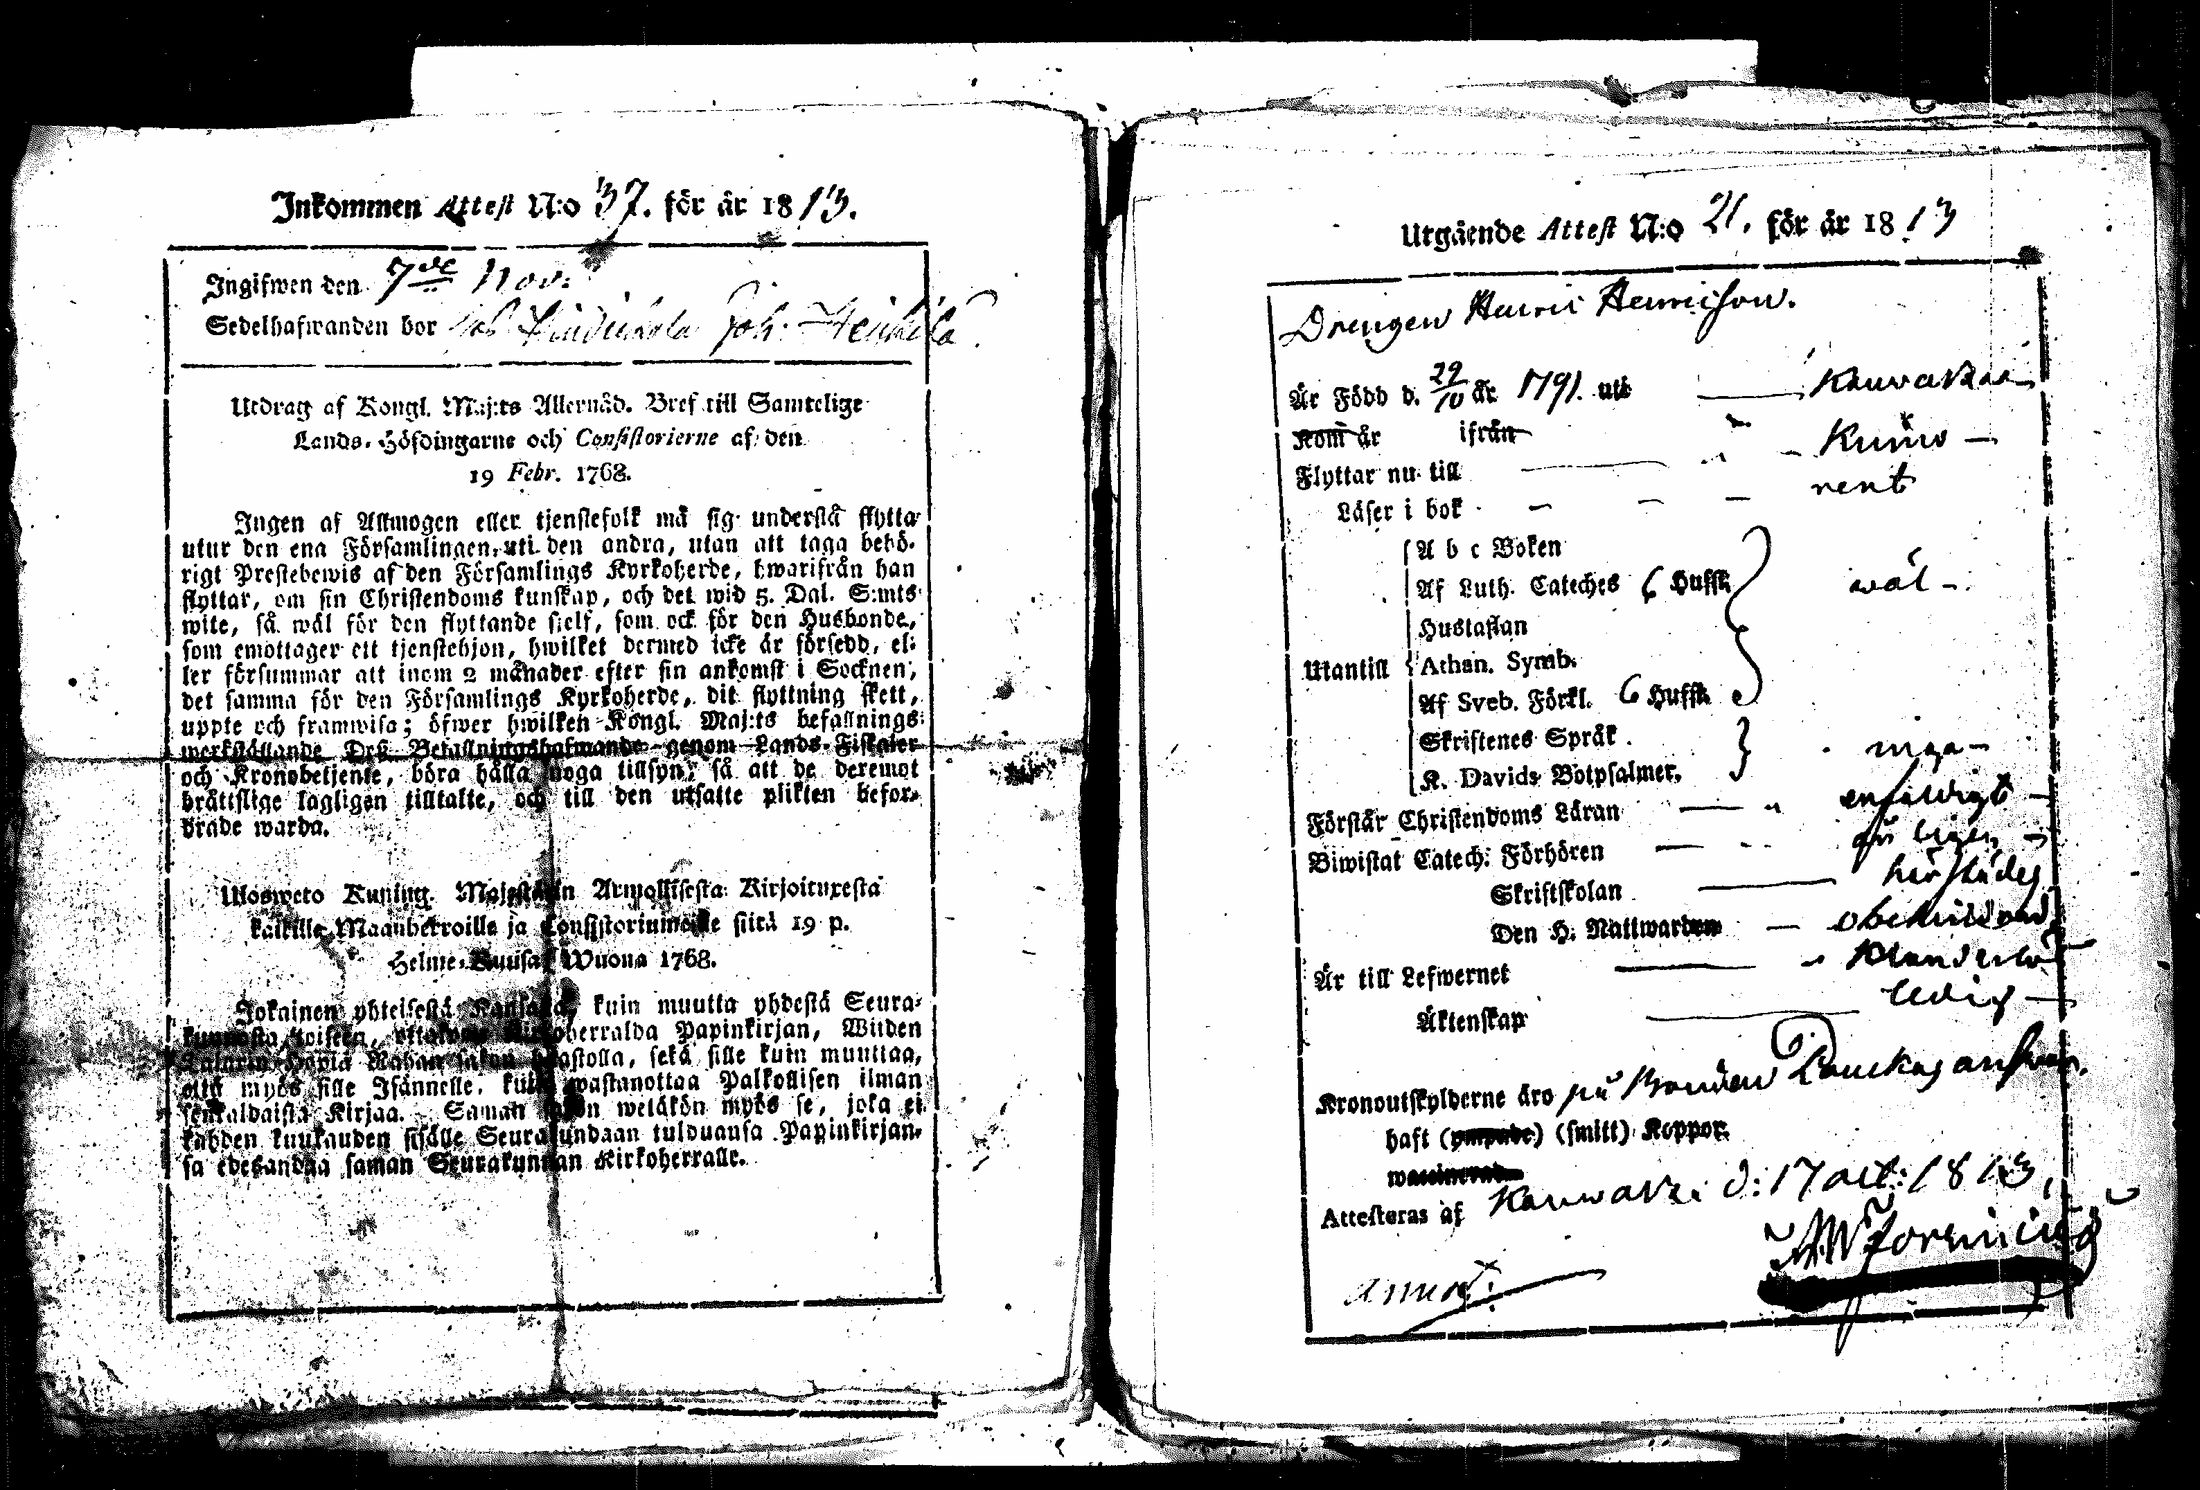 Inkommen Attest N:o 37. för år 1813.
Ingifwen den 7de Nov:
Sedelhafwanden bor Joh. Heikilä
Utdrag af Kongl. Maj:ts Allernåd. Bref till Samtelige
Lands-Höfdingarne och Consistorierne af den
19 Febr. 1768.
Ingen af Allmogen eller tjenstefolk må sig understå flytta
utur den ena Församlingen uti den andra, utan att taga behö-
rigt Prestebewis af den Församlings Kyrkoherde, hwarifrån han
flyttar, om sin Christendoms kunskap, och det wid 5. Dal. S:mts
wite, så wäl för den flyttande sjelf, som ock för den Husbonde,
som emottager ett tjenstehjon, hwilket dermed icke är försedd, el-
ler försummar att inom 2 månader efter sin ankomst i Socknen,
det samma för den Församlings Kyrkoherde, dit flyttning skett,
uppte och framwisa; öfwer hwilken Kongl. Maj:ts befallnings
werkställande Dess Befallningshafwande genom Lands-Fiskaler
och Kronobetjente, böra hålla noga tillsyn, så att de deremot
brättslige lagligen tilltalte, och till den utsatte plikten befor-
drade warda.
Ulosweto Kuning. Majestätin Armollisesta Kirjoituxesta
kaikille Maanherroille ja Consistoriumeille siitä 19 p.
Helme-Kuusa Wuona 1768.
Jokainen yhteisestä Kansasta, kuin muutta yhdestä Seura-
kunnasta toiseen, ottakoon Kirkoherralda Papinkirjan, Wiiden
Talarin Hopia Rahan sakon haastolla, sekä sille kuin muuttaa,
että myös sille Isännelle, kuin wastanottaa Palkollisen ilman
senkaldaista Kirjaa. Saman sakon wetäkön myös se, joka ei
kahden kuukauden sisälle Seurakundaan tulduansa Papinkirjan-
sa edesandaa saman Seurakunnan Kirkoherralle.
Utgående Attest N:o 21. för år 1813
Drengen Henric Henricsson.
Är Född d. 29/10 år 1791. uti Kauvatza
Kom år ifrån
Flyttar nu till Kumo
Läser i bok rent
A b c Boken
Af Luth. Cateches 6 Hufst. wäl
Hustaflan
Utantill Athan. Symb.
Af Sveb. Förkl. 6 Hufst.
Skriftenes Språk
K. Davids Botpsalmer. inga
Förstår Christendoms Läran enfaldigt
Biwistat Catech: Förhören
Skriftskolan härstädes
Den H. Nattwarden obehindrad
Är till Lefwernet klanderlös
Äktenskap ledig
Kronoutskylderne äro på Bonden
haft (ympade) (smitt) Koppor.
waccinerad
Attesteras af Kauwatza d: 17 oct: 1813,
Annot: